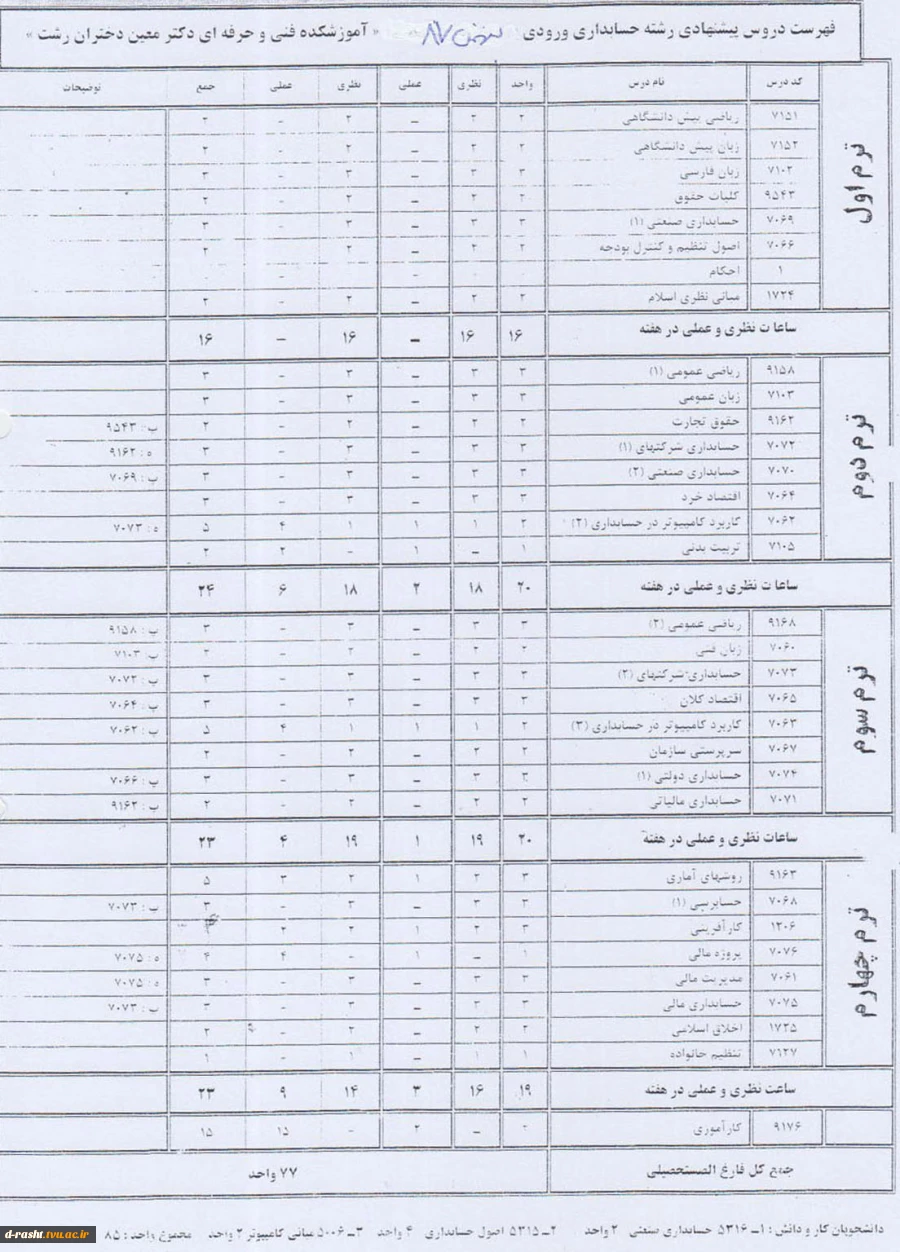 فهرست دروس پیشنهادی رشته حسابداری ورودی بهمن ۸۷ « آموزشکده فنی و حرفه ای دکتر معین دختران رشت »
کد درس نام درس واحد نظری عملی نظری عملی جمع توضیحات
ترم اول
۷۱۵۱ ریاضی پیش دانشگاهی ۲ ۲ - ۲ - ۲
۷۱۵۲ زبان پیش دانشگاهی ۲ ۲ - ۲ - ۲
۷۱۰۲ زبان فارسی ۳ ۳ - ۳ - ۳
۹۵۴۳ کلیات حقوق ۲ ۲ - ۲ - ۲
۷۰۶۹ حسابداری صنعتی (۱) ۳ ۳ - ۳ - ۳
۷۰۶۶ اصول تنظیم و کنترل بودجه ۲ ۲ - ۲ - ۲
۱ احکام - - - - - -
۱۷۲۴ مبانی نظری اسلام ۲ ۲ - ۲ - ۲
ساعات نظری و عملی در هفته ۱۶ ۱۶ - ۱۶ - ۱۶
ترم دوم
۹۱۵۸ ریاضی عمومی (۱) ۳ ۳ - ۳ - ۳
۷۱۰۳ زبان عمومی ۳ ۳ - ۳ - ۳
۹۱۶۲ حقوق تجارت ۲ ۲ - ۲ - ۲ پ : ۹۵۴۳
۷۰۷۲ حسابداری شرکتهای (۱) ۳ ۳ - ۳ - ۳ ه : ۹۱۶۲
۷۰۷۰ حسابداری صنعتی (۲) ۳ ۳ - ۳ - ۳ پ : ۷۰۶۹
۷۰۶۴ اقتصاد خرد ۳ ۳ - ۳ - ۳
۷۰۶۲ کاربرد کامپیوتر در حسابداری (۲) ۲ ۱ ۱ ۱ ۴ ۵ ه : ۷۰۷۳
۷۱۰۵ تربیت بدنی ۱ - ۱ - ۲ ۲
ساعات نظری و عملی در هفته ۲۰ ۱۸ ۲ ۱۸ ۶ ۲۴
ترم سوم
۹۱۶۸ ریاضی عمومی (۲) ۳ ۳ - ۳ - ۳ پ : ۹۱۵۸
۷۰۶۰ زبان فنی ۲ ۲ - ۲ - ۲ پ : ۷۱۰۳
۷۰۷۳ حسابداری شرکتهای (۲) ۳ ۳ - ۳ - ۳ پ : ۷۰۷۲
۷۰۶۵ اقتصاد کلان ۳ ۳ - ۳ - ۳ پ : ۷۰۶۴
۷۰۶۳ کاربرد کامپیوتر در حسابداری (۳) ۲ ۱ ۱ ۱ ۴ ۵ پ : ۷۰۶۲
۷۰۶۷ سرپرستی سازمان ۲ ۲ - ۲ - ۲
۷۰۷۴ حسابداری دولتی (۱) ۳ ۳ - ۳ - ۳ پ : ۷۰۶۶
۷۰۷۱ حسابداری مالیاتی ۲ ۲ - ۲ - ۲ پ : ۹۱۶۲
ساعات نظری و عملی در هفته ۲۰ ۱۹ ۱ ۱۹ ۴ ۲۳
ترم چهارم
۹۱۶۳ روشهای آماری ۳ ۲ ۱ ۲ ۳ ۵
۷۰۶۸ حسابرسی (۱) ۳ ۳ - ۳ - ۳ پ : ۷۰۷۳
۱۲۰۶ کارآفرینی ۳ ۲ ۱ ۲ ۲
۷۰۷۶ پروژه مالی ۱ - ۱ - ۴ ۴ ه : ۷۰۷۵
۷۰۶۱ مدیریت مالی ۳ ۳ - ۳ - ۳ ه : ۷۰۷۵
۷۰۷۵ حسابداری مالی ۳ ۳ - ۳ - ۳ پ : ۷۰۷۳
۱۷۲۵ اخلاق اسلامی ۲ ۲ - ۲ - ۲
۷۱۲۷ تنظیم خانواده ۱ ۱ - ۱ - ۱
ساعت نظری و عملی در هفته ۱۹ ۱۶ ۳ ۱۴ ۹ ۲۳
۹۱۷۶ کارآموزی ۲ - ۲ - ۱۵ ۱۵
جمع کل فارغ التحصیلی ۷۷ واحد
دانشجویان کار و دانش : ۱ـ ۵۳۱۶ حسابداری صنعتی ۲ واحد ۲ـ ۵۳۱۵ اصول حسابداری ۴ واحد ۳ـ ۵۰۰۶ مبانی کامپیوتر ۲ واحد مجموع واحد : ۸۵
d-rasht.tvu.ac.ir